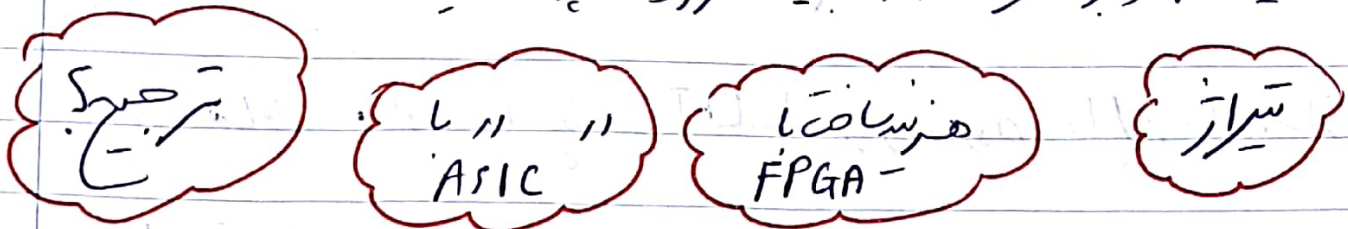 تیراژ
هزینه ساخت با
FPGA
〃 〃 با
ASIC
ترجیح؟